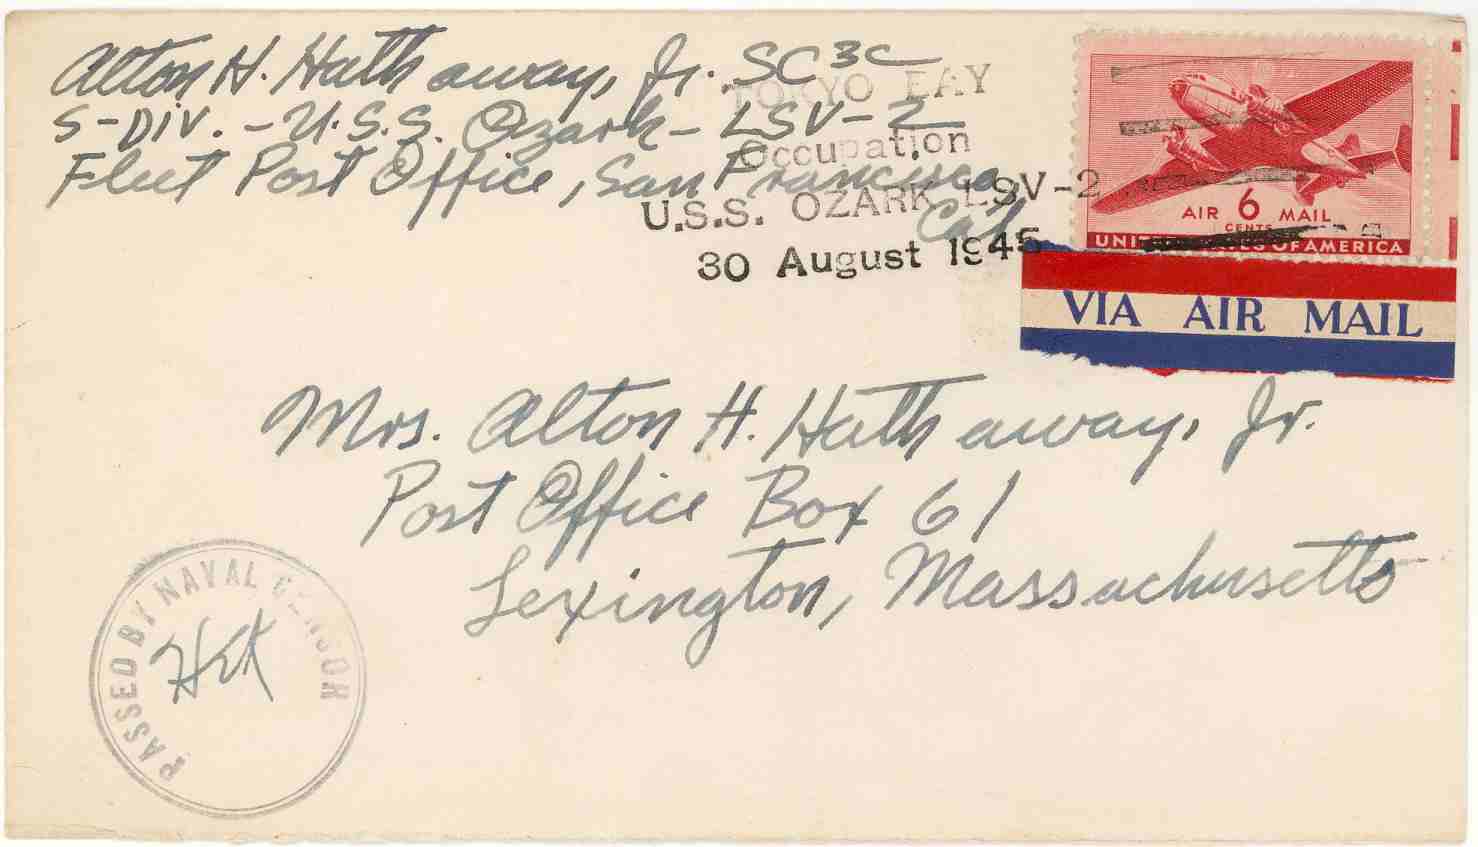 Alton H. Hathaway, Jr. SC3C
S-Div. - U.S.S. Ozark - LSV-2
Fleet Post Office, San Francisco,
Cal
TOKYO BAY
Occupation
U.S.S. OZARK LSV-2
30 August 1945
AIR 6 MAIL
CENTS
UNITED STATES OF AMERICA
VIA AIR MAIL
Mrs. Alton H. Hathaway, Jr.
Post Office Box 61
Lexington, Massachusetts
PASSED BY NAVAL CENSOR